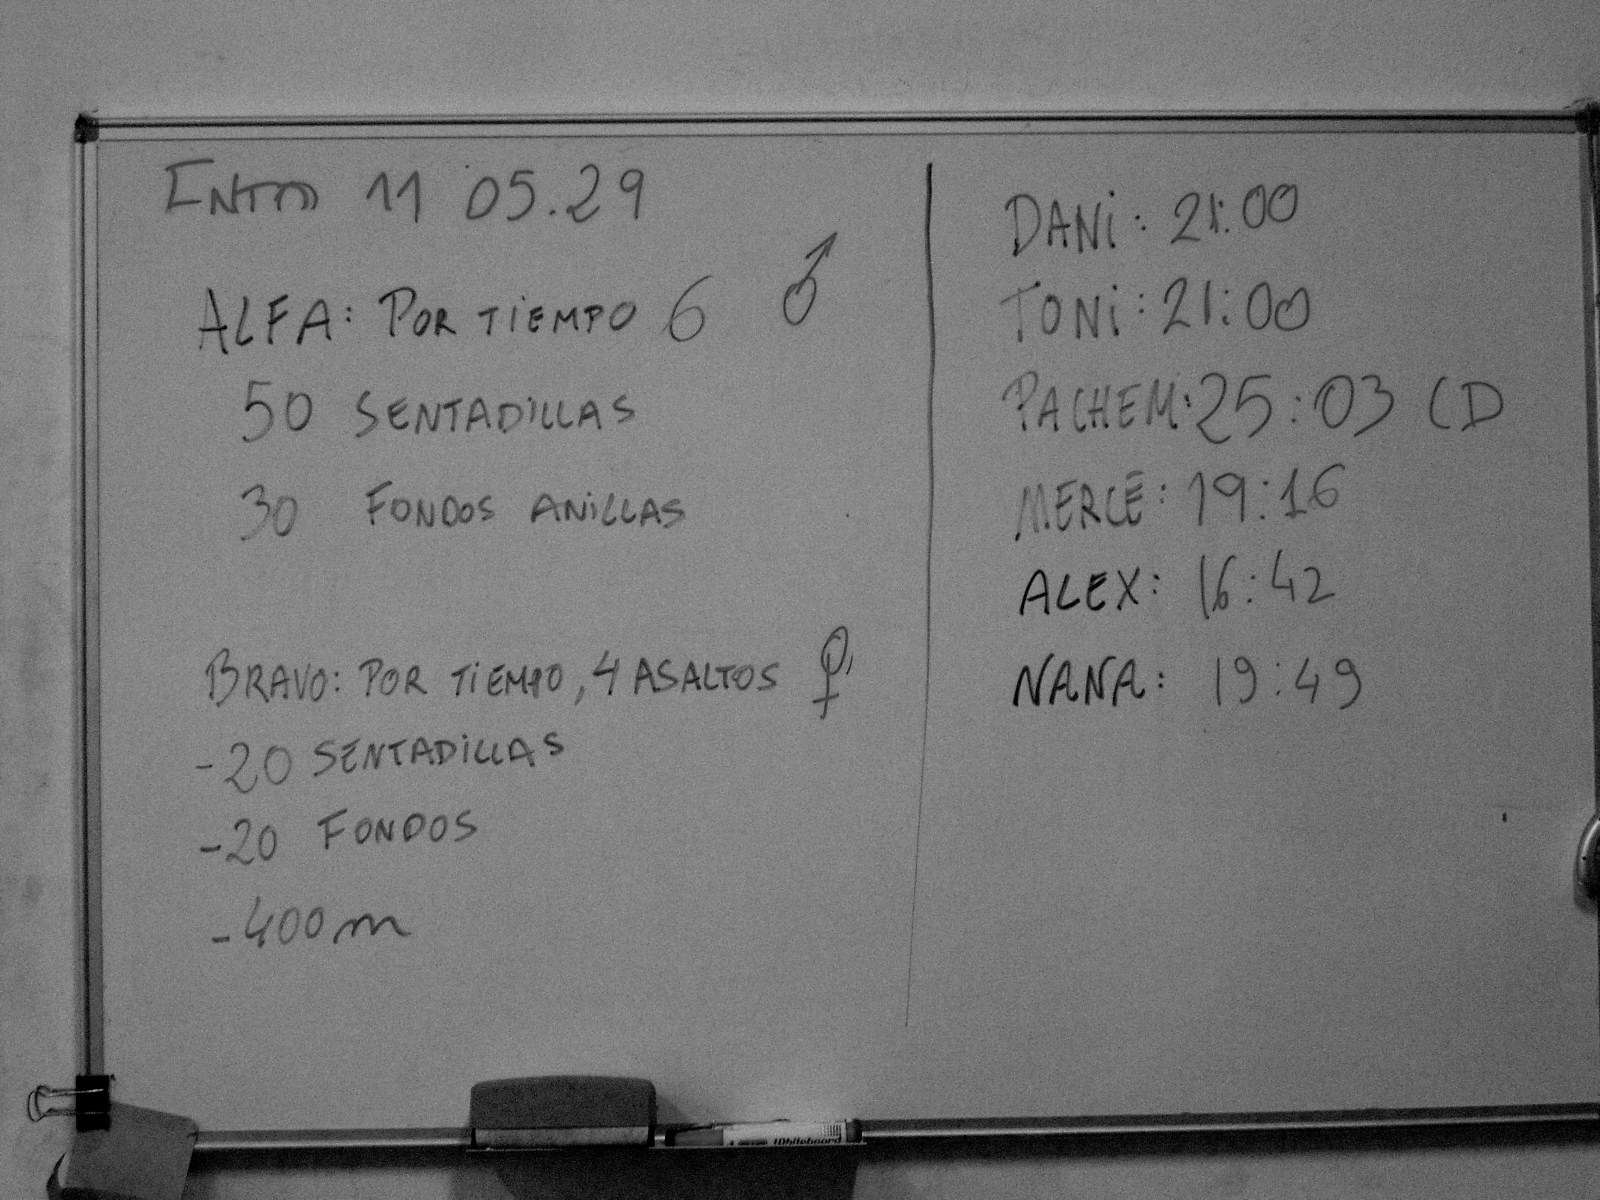 ENTTO 11 05.29
ALFA: POR TIEMPO 6 ♂
50 SENTADILLAS
30 FONDOS ANILLAS
BRAVO: POR TIEMPO, 4 ASALTOS ♀
-20 SENTADILLAS
-20 FONDOS
-400m
DANI: 21:00
TONI: 21:00
PACHEM: 25:03 CD
MERCE: 19:16
ALEX: 16:42
NANA: 19:49
Whiteboard